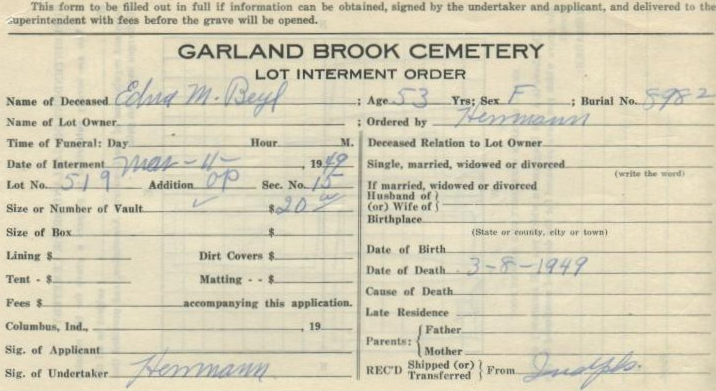 This form to be filled out in full if information can be obtained, signed by the undertaker and applicant, and delivered to the
superintendent with fees before the grave will be opened.
GARLAND BROOK CEMETERY
LOT INTERMENT ORDER
Name of Deceased Edna M. Beyl ; Age 53 Yrs; Sex F ; Burial No. 8982
Name of Lot Owner ; Ordered by Herrmann
Time of Funeral: Day Hour M.
Date of Interment Mar - 11 - , 1949
Lot No. 519 Addition OP Sec. No. 15
Size or Number of Vault ✓ $20
Size of Box $
Lining $ Dirt Covers $
Tent - $ Matting - - $
Fees $ accompanying this application.
Columbus, Ind., , 19
Sig. of Applicant
Sig. of Undertaker Herrmann
Deceased Relation to Lot Owner
Single, married, widowed or divorced
(write the word)
If married, widowed or divorced
Husband of }
(or) Wife of }
Birthplace
(State or county, city or town)
Date of Birth
Date of Death 3-8-1949
Cause of Death
Late Residence
Parents: { Father
Mother
REC'D Shipped (or) Transferred } From Indpls.